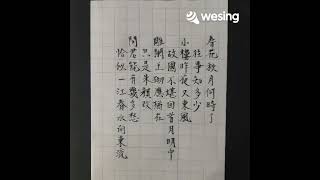 wesing
春花秋月何時了
往事知多少
小樓昨夜又東風
故國不堪回首月明中
雕闌玉砌應猶在
只是朱顏改
問君能有幾多愁
恰似一江春水向東流